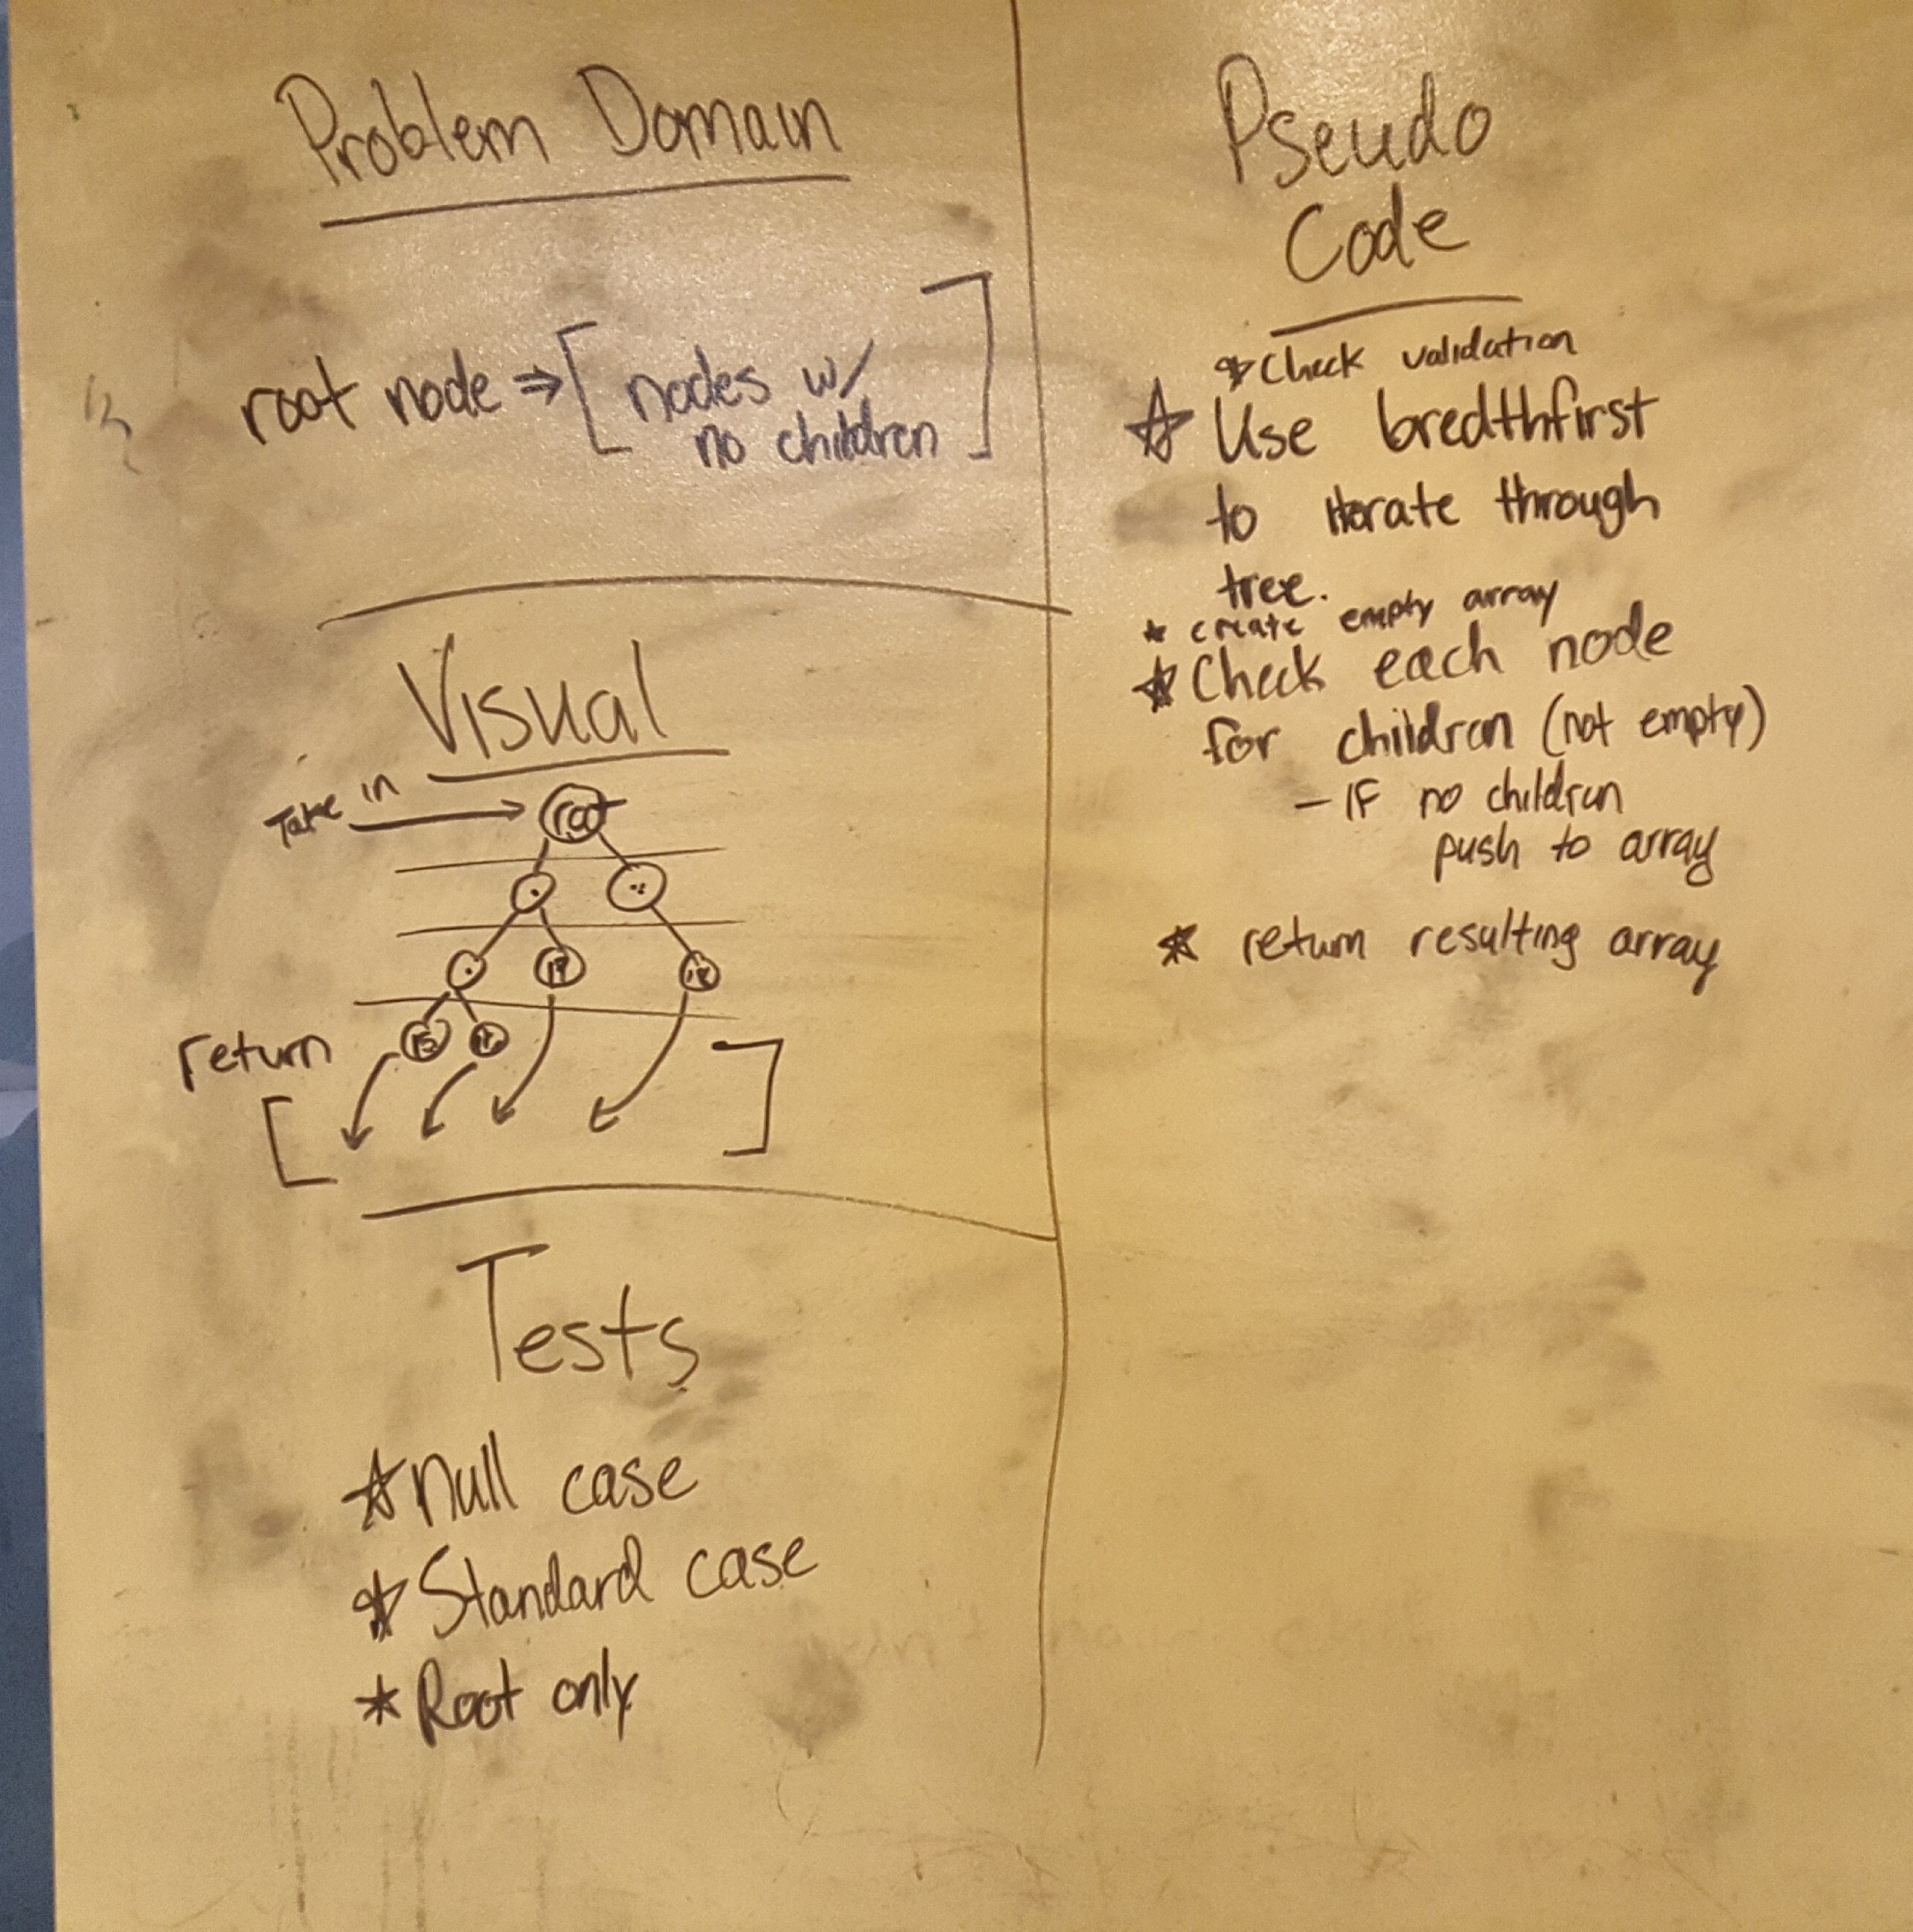 Problem Domain
root node ⇒ [nodes w/
no children]
Visual
Take in
root
19
return
[ ]
Tests
☆ null case
☆ Standard case
* Root only
Pseudo
Code
☆ Check validation
☆ Use bredthfirst
to iterate through
tree.
* create empty array
☆ Check each node
for children (not empty)
- IF no children
push to array
* return resulting array